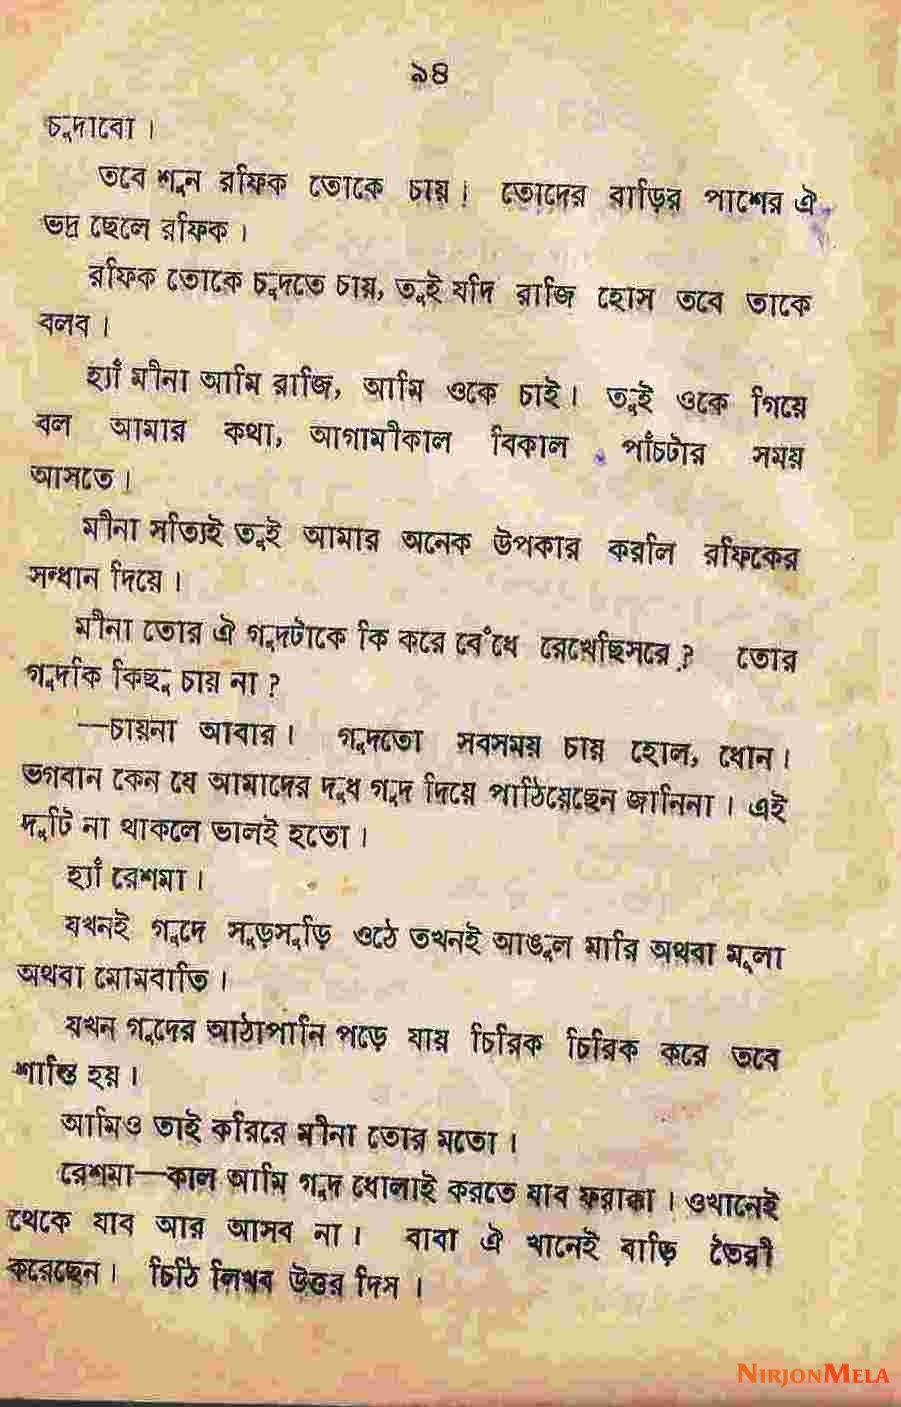 ৯৪
চুদাবো ।
তবে শুন রফিক তোকে চায় ! তোদের বাড়ির পাশের ঐ
ভদ্র ছেলে রফিক ।
রফিক তোকে চুদতে চায়, তুই যদি রাজি হোস তবে তাকে
বলব ।
হ্যাঁ মীনা আমি রাজি, আমি ওকে চাই । তুই ওকে গিয়ে
বল আমার কথা, আগামীকাল বিকাল পাঁচটার সময়
আসতে ।
মীনা সত্যিই তুই আমার অনেক উপকার করলি রফিকের
সন্ধান দিয়ে ।
মীনা তোর ঐ গুদটাকে কি করে বেঁধে রেখেছিসরে ? তোর
গুদকি কিছু চায় না ?
—চায়না আবার । গুদতো সবসময় চায় হোল, ধোন ।
ভগবান কেন যে আমাদের দুধ গুদ দিয়ে পাঠিয়েছেন জানিনা । এই
দুটি না থাকলে ভালই হতো ।
হ্যাঁ রেশমা ।
যখনই গুদে সুড়সুড়ি ওঠে তখনই আঙুল মারি অথবা মূলা
অথবা মোমবাতি ।
যখন গুদের আঠাপানি পড়ে যায় চিরিক চিরিক করে তবে
শান্তি হয় ।
আমিও তাই করিরে মীনা তোর মতো ।
রেশমা—কাল আমি গুদ ধোলাই করতে যাব ফরাক্কা । ওখানেই
থেকে যাব আর আসব না । বাবা ঐ খানেই বাড়ি তৈরী
করেছেন । চিঠি লিখব উত্তর দিস ।
NIRJONMELA